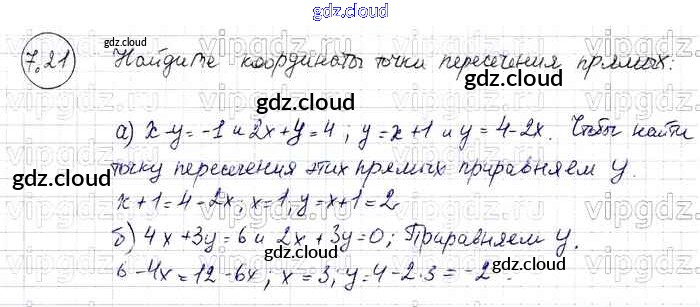 gdz.cloud
7.21 Найдите координаты точки пересечения прямых:
а) x-y=-1 и 2x+y=4; y=x+1 и y=4-2x. Чтобы найти
точку пересечения этих прямых приравняем y.
x+1=4-2x; x=1, y=x+1=2
б) 4x+3y=6 и 2x+3y=0; Приравняем y.
6-4x=12-6x; x=3; y=4-2·3=-2.
gdz.cloud
gdz.cloud
gdz.cloud
gdz.cloud
gdz.cloud
gdz.cloud